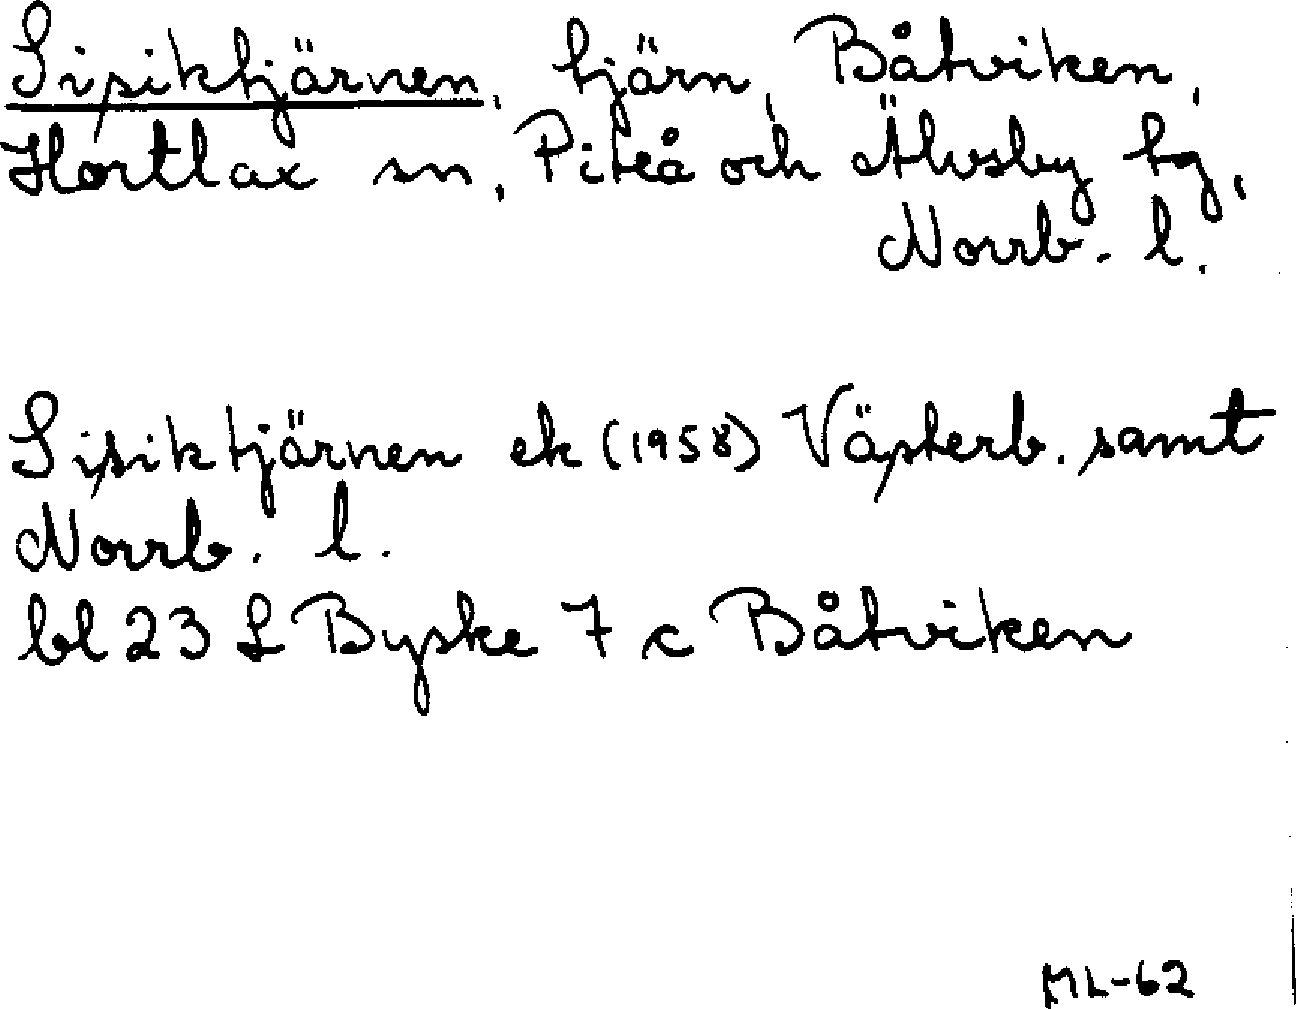 Sisiktjärnen, tjärn, Båtviken,
Hortlax sn, Piteå och Älvsby tg,
Norrb. l.
Sisiktjärnen ek (1958) Västerb. samt
Norrb. l.
bl 23 L Byske 7 c Båtviken
ML-62